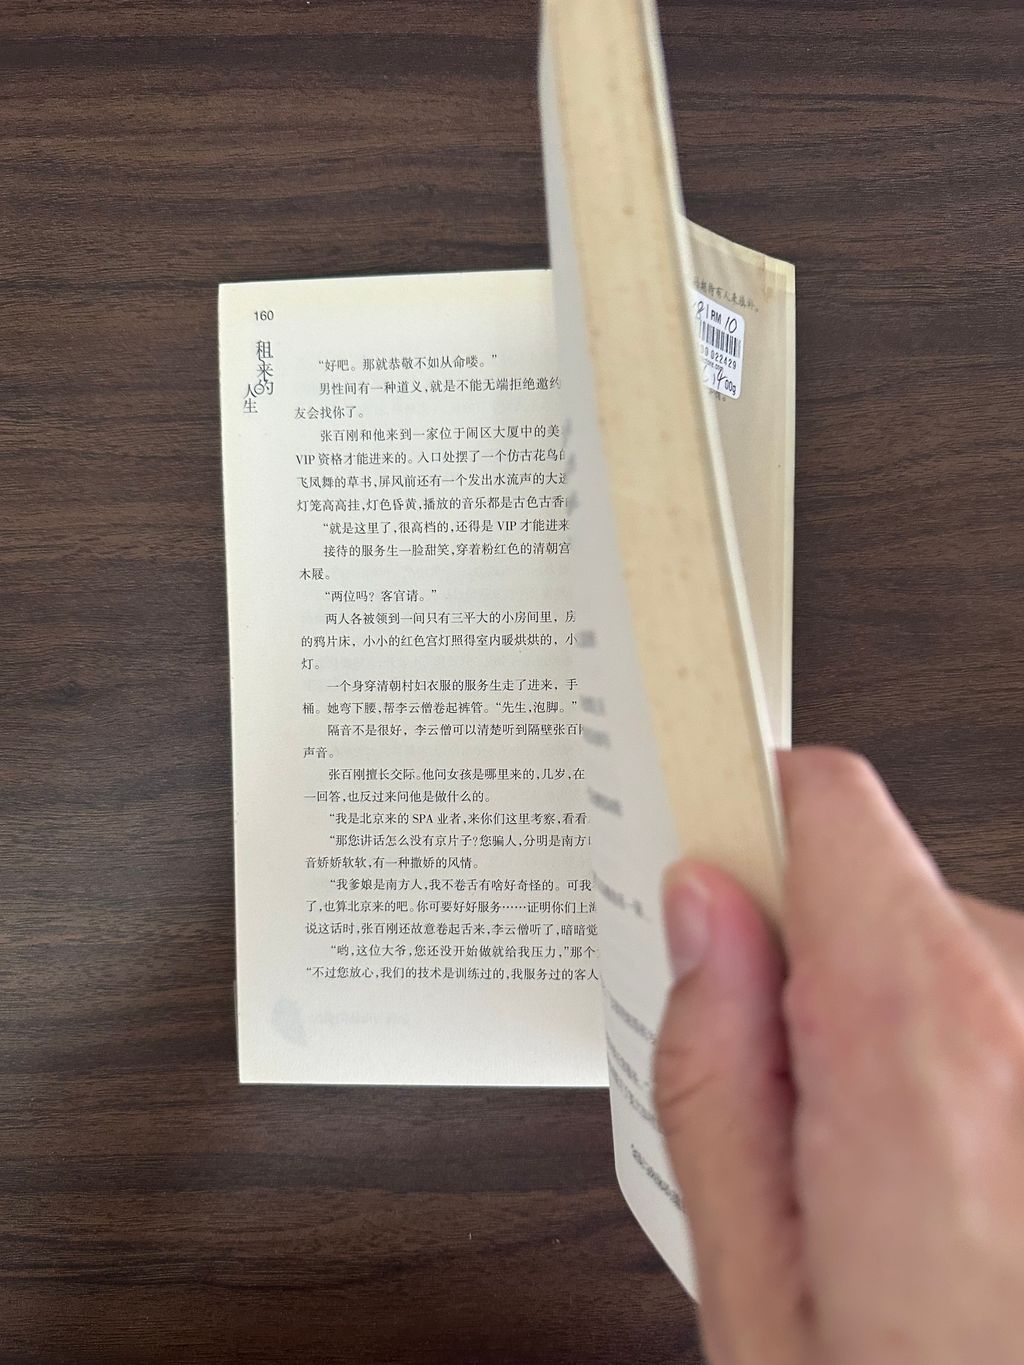 160
租来的
人生
“好吧。那就恭敬不如从命喽。”
男性间有一种道义,就是不能无端拒绝邀约
友会找你了。
张百刚和他来到一家位于闹区大厦中的美
VIP资格才能进来的。入口处摆了一个仿古花鸟的
飞凤舞的草书,屏风前还有一个发出水流声的大
灯笼高高挂,灯色昏黄,播放的音乐都是古色古香
“就是这里了,很高档的,还得是 VIP 才能进来
接待的服务生一脸甜笑,穿着粉红色的清朝宫
木屐。
“两位吗？客官请。”
两人各被领到一间只有三平大的小房间里，房
的鸦片床，小小的红色宫灯照得室内暖烘烘的，小
灯。
一个身穿清朝村妇衣服的服务生走了进来，手
桶。她弯下腰,帮李云僧卷起裤管。“先生,泡脚。”
隔音不是很好，李云僧可以清楚听到隔壁张百
声音。
张百刚擅长交际。他问女孩是哪里来的,几岁,在
一回答,也反过来问他是做什么的。
“我是北京来的 SPA 业者,来你们这里考察,看看
“那您讲话怎么没有京片子?您骗人,分明是南方
音娇娇软软,有一种撒娇的风情。
“我爹娘是南方人,我不卷舌有啥好奇怪的。可我
了,也算北京来的吧。你可要好好服务……证明你们上
说这话时,张百刚还故意卷起舌来,李云僧听了,暗暗觉
“哟,这位大爷,您还没开始做就给我压力,”那个
“不过您放心,我们的技术是训练过的,我服务过的客人
期待有人来
RM 10
022429
00g